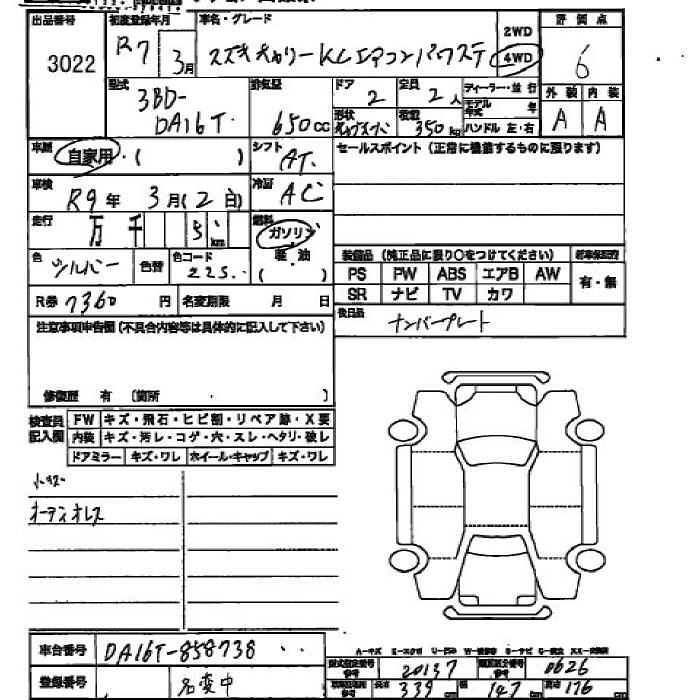 出品番号 初度登録年月 車名・グレード 2WD 評価点
3022 R7 3月 スズキ キャリー KCエアコンパワステ 4WD 6
型式 排気量 ドア 定員 ディーラー・並行 外装 内装
3BD-DA16T 650cc 2 2人 モデル年式 年 A A
形状 積載 350kg ハンドル 左・右
車歴 自家用・( ) シフト AT セールスポイント(正常に機能するものに限ります)
車検 R9年 3月(2日) 冷房 AC
走行 万 千 5 km 燃料 ガソリン
軽・油
( )
色 シルバー 色替 色コード 225
装備品(純正品に限り○をつけてください) 新車保証書
PS PW ABS エアB AW 有・無
SR ナビ TV カワ
R券 7360 円 名変期限 月 日
後日品 ナンバープレート
注意事項申告欄(不具合内容等は具体的に記入して下さい)
修復歴 有 〔箇所 〕
検査員記入欄 FW キズ・飛石・ヒビ割・リペア跡・X要
内装 キズ・汚レ・コゲ・穴・スレ・ヘタリ・破レ
ドアミラー キズ・ワレ ホイール・キャップ キズ・ワレ
小キズ
オーディオレス
車台番号 DA16T-858738
登録番号 名変中
型式指定番号 20137 類別区分番号 0626
長さ 339 cm 幅 147 cm 高さ 176 cm